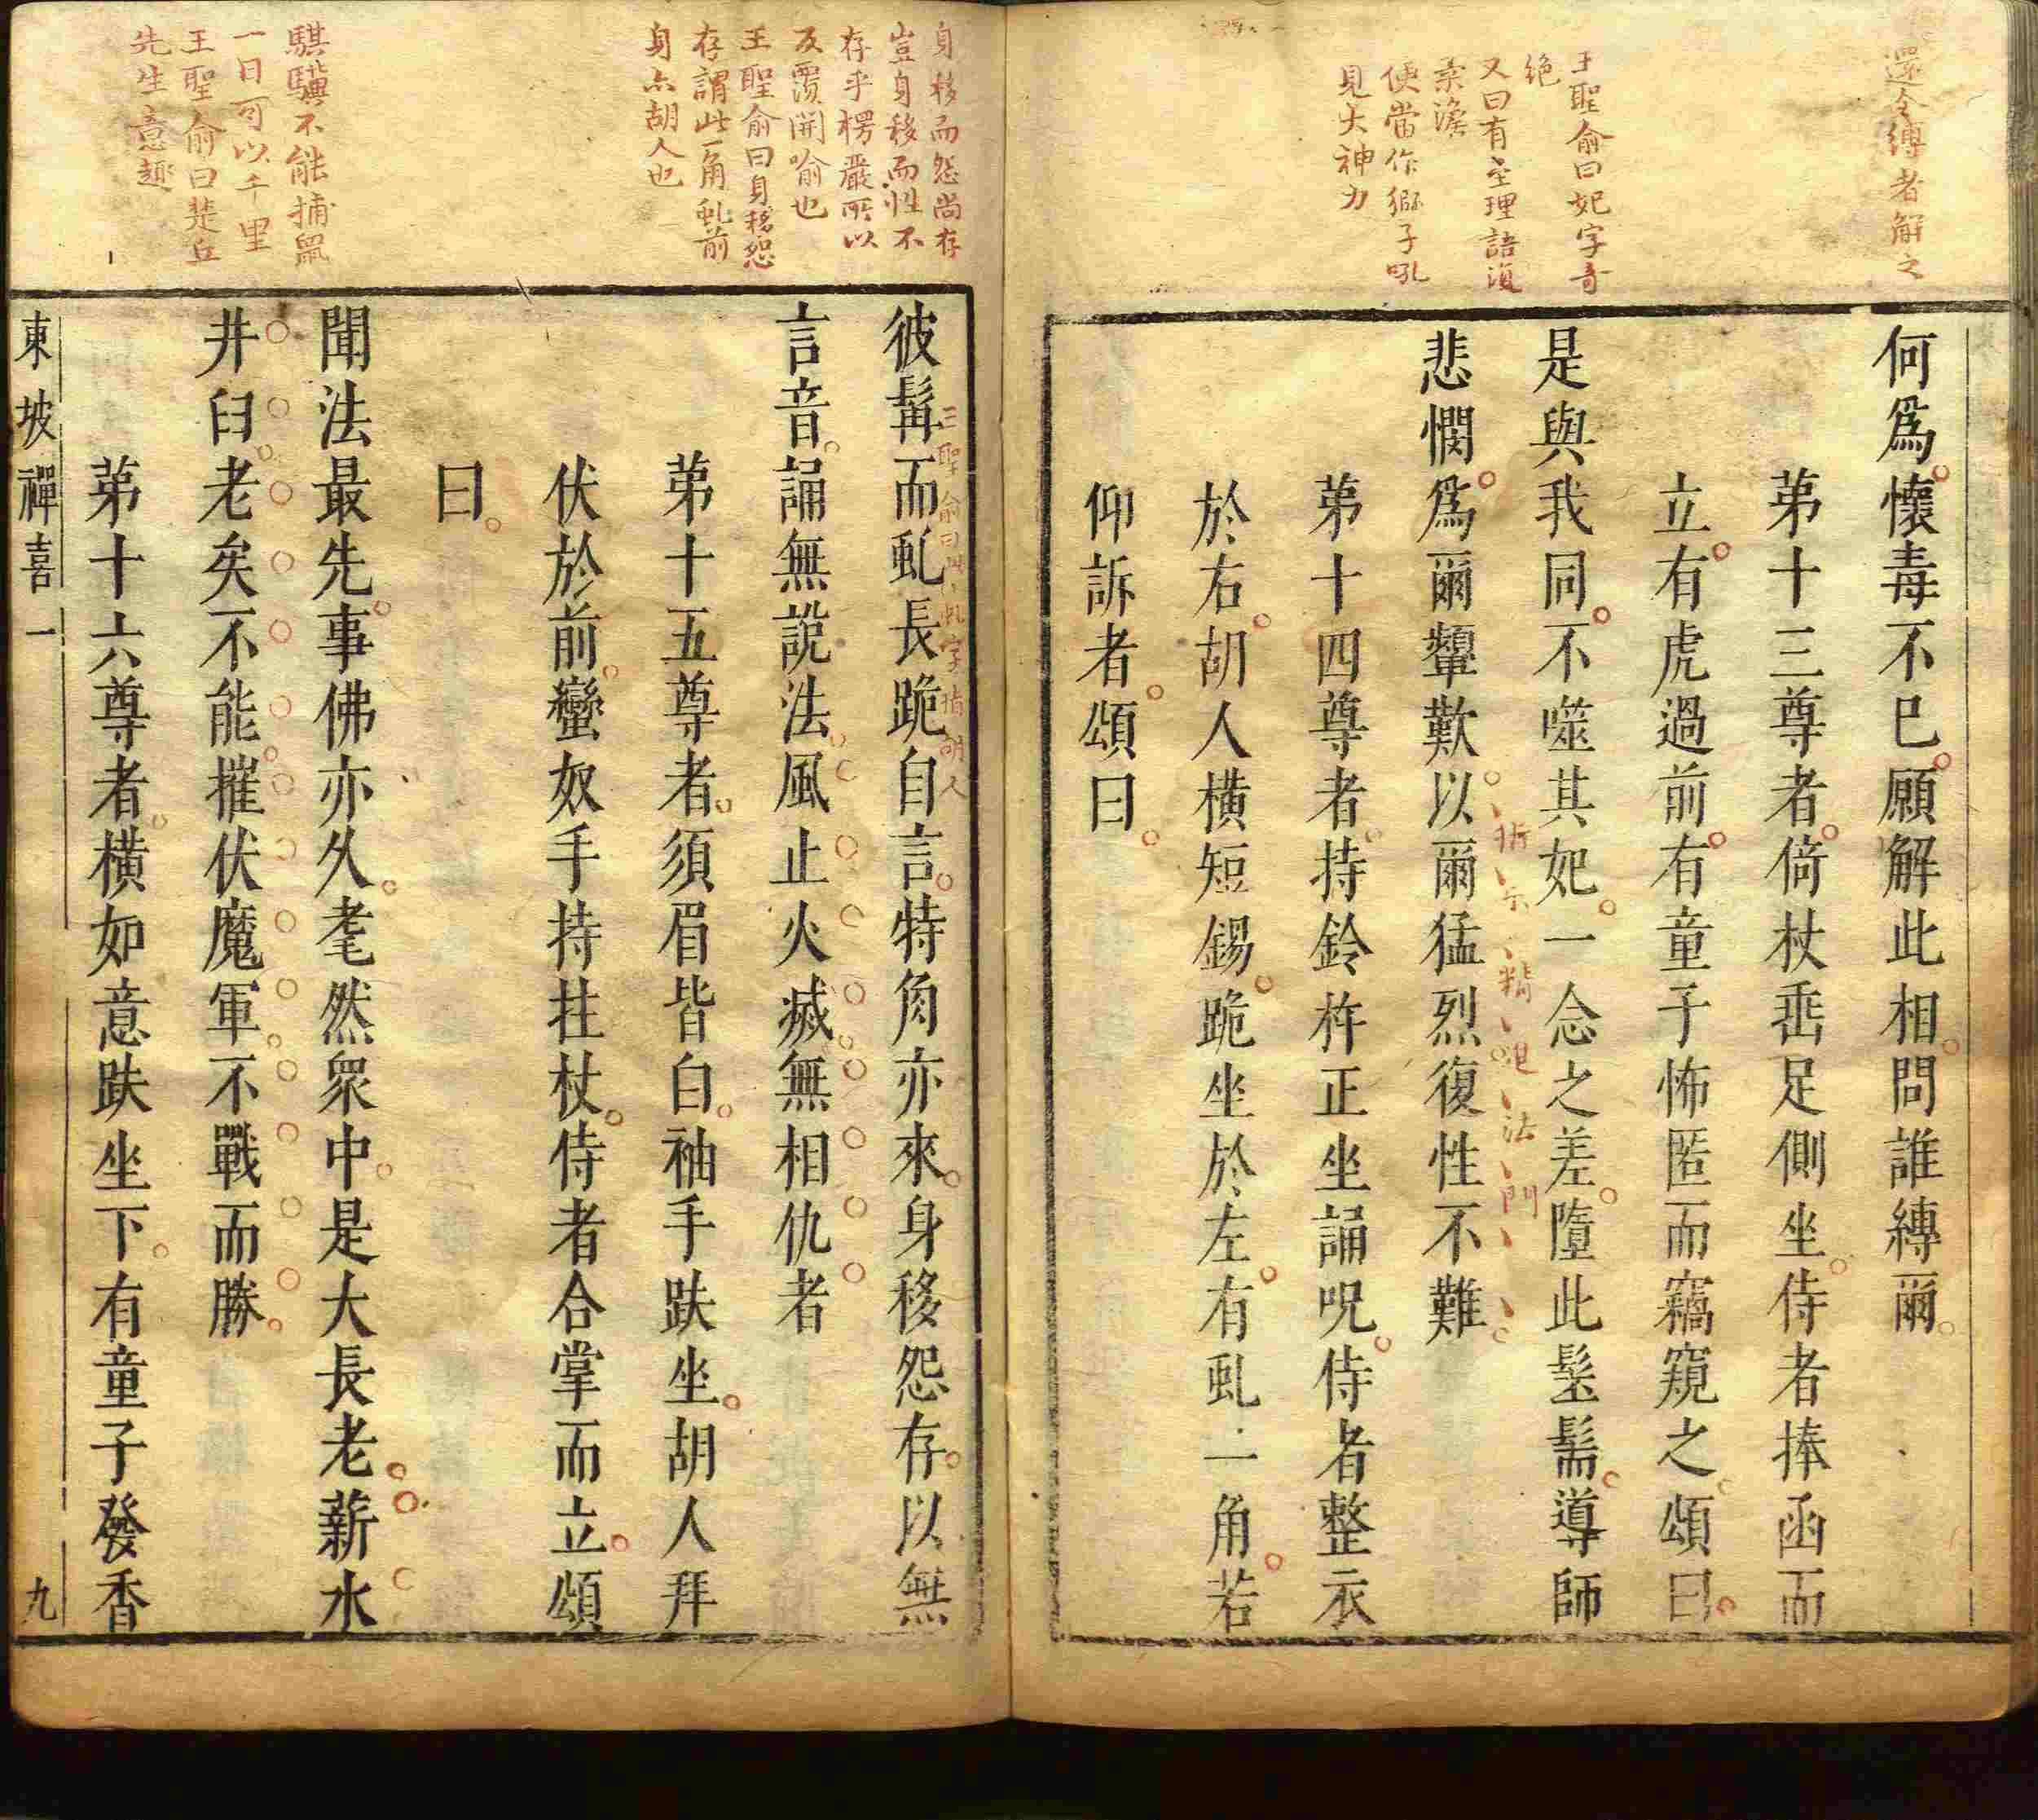 還令縛者解之
王聖俞曰妃字奇
絕
又曰有至理語須
索澹
便當作獅子吼
見大神力
何爲懷毒不已願解此相問誰縛爾
第十三尊者倚杖垂足側坐侍者捧函而
立有虎過前有童子怖匿而竊窺之頌曰
是與我同不噬其妃一念之差墮此髬髵導師
悲憫爲爾顰歎以爾猛烈復性不難
指示精進法門
第十四尊者持鈴杵正坐誦呪侍者整衣
於右胡人橫短錫跪坐於左有虬一角若
仰訴者頌曰
身移而怨尚存
豈身移而性不
存乎楞嚴所以
反覆開喻也
王聖俞曰身移怨
存謂此一角虬前
身亦胡人也
騏驥不能捕鼠
一日可以千里
王聖俞曰楚丘
先生意趣
彼髯而虬長跪自言特角亦來身移怨存以無
王聖俞曰特字指胡人
言音誦無說法風止火滅無相仇者
第十五尊者須眉皆白袖手趺坐胡人拜
伏於前蠻奴手持拄杖侍者合掌而立頌
曰
聞法最先事佛亦久耄然眾中是大長老薪水
井臼老矣不能摧伏魔軍不戰而勝
第十六尊者橫如意趺坐下有童子發香
東坡禪喜 一 九